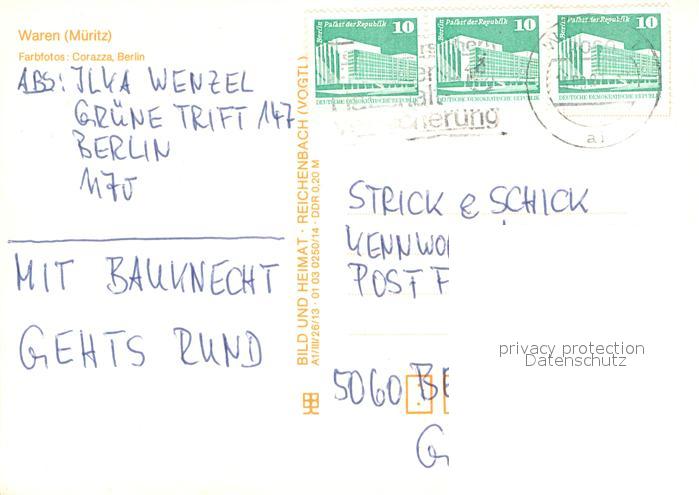 Waren (Müritz)
Farbfotos: Corazza, Berlin
ABS: ILKA WENZEL
GRÜNE TRIFT 147
BERLIN
1170
MIT BAUKNECHT
GEHTS RUND
BILD UND HEIMAT · REICHENBACH (VOGTL)
A1/III/26/13 · 01 03 0250/14 · DDR 0,20 M
Berlin Palast der Republik 10
DEUTSCHE DEMOKRATISCHE REPUBLIK
Berlin Palast der Republik 10
DEUTSCHE DEMOKRATISCHE REPUBLIK
Berlin Palast der Republik 10
DEUTSCHE DEMOKRATISCHE REPUBLIK
a1
STRICK & SCHICK
KENNWO
POST F
5060 BE
G
privacy protection
Datenschutz